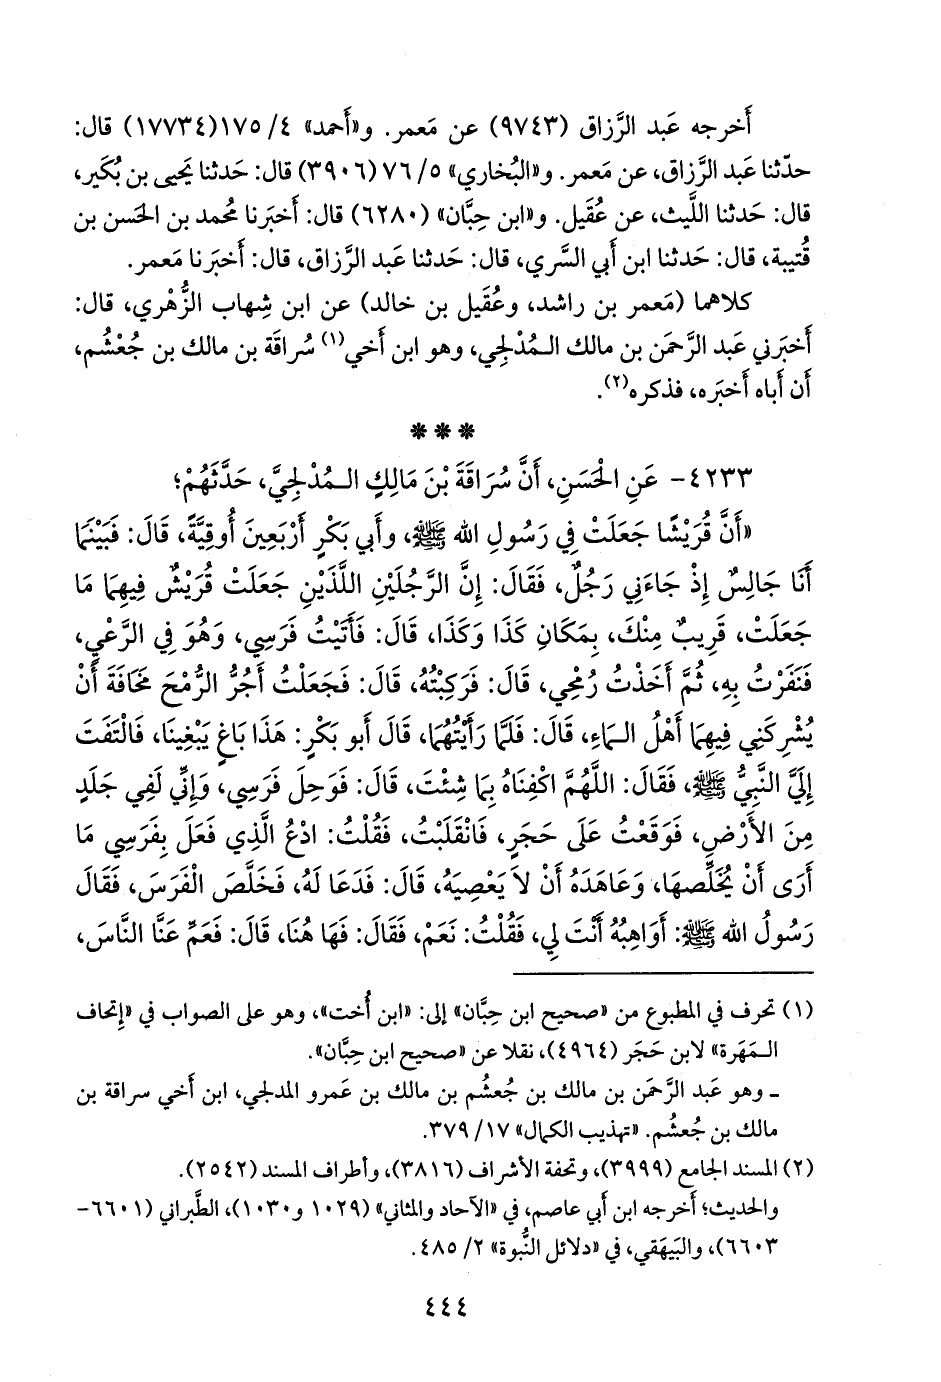 أَخرجه عَبد الرَّزاق (٩٧٤٣) عن مَعمر. و«أَحمد» ٤/ ١٧٥(١٧٧٣٤) قال:
حدّثنا عَبد الرَّزاق، عن مَعمر. و«البُخاري» ٥/ ٧٦ (٣٩٠٦) قال: حَدثنا يَحيى بن بُكَير،
قال: حَدثنا اللَّيث، عن عُقَيل. و«ابن حِبَّان» (٦٢٨٠) قال: أَخبَرنا مُحمد بن الحَسن بن
قُتيبة، قال: حَدثنا ابن أَبي السَّري، قال: حَدثنا عَبد الرَّزاق، قال: أَخبَرنا مَعمر.
كلاهما (مَعمر بن راشد، وعُقَيل بن خالد) عن ابن شِهاب الزُّهْري، قال:
أَخبَرني عَبد الرَّحمَن بن مالك الـمُدْلجي، وهو ابن أَخي(١) سُراقَة بن مالك بن جُعْشُم،
أَن أَباه أَخبَره، فذكره(٢).
***
٤٢٣٣- عَنِ الْحَسَنِ، أَنَّ سُرَاقَةَ بْنَ مَالِكٍ الـمُدْلجِيَّ، حَدَّثَهُمْ؛
«أَنَّ قُرَيْشًا جَعَلَتْ فِي رَسُولِ الله ﷺ، وأَبي بَكْرٍ أَرْبَعِينَ أُوقِيَّةً، قَالَ: فَبَيْنَمَا
أَنَا جَالِسٌ إِذْ جَاءَنِي رَجُلٌ، فَقَالَ: إِنَّ الرَّجُلَيْنِ اللَّذَيْنِ جَعَلَتْ قُرَيْشٌ فِيهِمَا مَا
جَعَلَتْ، قَرِيبٌ مِنْكَ، بِمَكَانِ كَذَا وَكَذَا، قَالَ: فَأَتَيْتُ فَرَسِي، وَهُوَ فِي الرَّعْيِ،
فَنَفَرْتُ بِهِ، ثُمَّ أَخَذْتُ رُمْحِي، قَالَ: فَرَكِبْتُهُ، قَالَ: فَجَعَلْتُ أَجُرُّ الرُّمْحَ مَخَافَةَ أَنْ
يُشْرِكَنِي فِيهِمَا أَهْلُ الـماءِ، قَالَ: فَلَمَّا رَأَيْتُهُمَا، قَالَ أَبو بَكْرٍ: هَذَا بَاغٍ يَبْغِينَا، فَالْتَفَتَ
إِلَيَّ النَّبِيُّ ﷺ، فَقَالَ: اللَّهُمَّ اكْفِنَاهُ بِمَا شِئْتَ، قَالَ: فَوَحِلَ فَرَسِي، وَإِنِّي لَفِي جَلَدٍ
مِنَ الأَرْضِ، فَوَقَعْتُ عَلَى حَجَرٍ، فَانْقَلَبْتُ، فَقُلْتُ: ادْعُ الَّذِي فَعَلَ بِفَرَسِي مَا
أَرَى أَنْ يُخَلِّصَهَا، وَعَاهَدَهُ أَنْ لاَ يَعْصِيَهُ، قَالَ: فَدَعَا لَهُ، فَخَلَّصَ الْفَرَسَ، فَقَالَ
رَسُولُ الله ﷺ: أَوَاهِبُهُ أَنْتَ لِي، فَقُلْتُ: نَعَمْ، فَقَالَ: فَهَا هُنَا، قَالَ: فَعَمِّ عَنَّا النَّاسَ،
(١) تحرف في المطبوع من «صحيح ابن حِبَّان» إلى: «ابن أُخت»، وهو على الصواب في «إِتحاف
الـمَهَرة» لابن حَجَر (٤٩٦٤)، نقلا عن «صحيح ابن حِبَّان».
ـ وهو عَبد الرَّحمَن بن مالك بن جُعشُم بن مالك بن عَمرو المدلجي، ابن أَخي سراقة بن
مالك بن جُعشُم. «تهذيب الكمال» ١٧/ ٣٧٩.
(٢) المسند الجامع (٣٩٩٩)، وتحفة الأشراف (٣٨١٦)، وأطراف المسند (٢٥٤٢).
والحديث؛ أَخرجه ابن أَبي عاصم، في «الآحاد والمثاني» (١٠٢٩ و١٠٣٠)، الطَّبراني (٦٦٠١-
٦٦٠٣)، والبَيهَقي، في «دلائل النُّبوة» ٢/ ٤٨٥.
٤٤٤